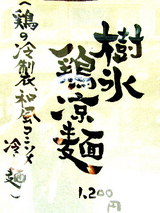 樹氷
鶏涼麺
(鶏の冷製和風コンソメ冷麺)
1,200円